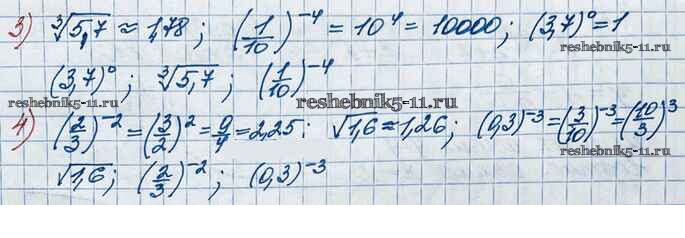 3) ∛5,7 ≈ 1,78 ; (1/10)^-4 = 10^4 = 10000 ; (3,7)^0 = 1
(3,7)^0 ; ∛5,7 ; (1/10)^-4
reshebnik5-11.ru reshebnik5-11.ru reshebnik5-11.ru
4) (2/3)^-2 = (3/2)^2 = 9/4 = 2,25 ; √1,6 ≈ 1,26 ; (0,3)^-3 = (3/10)^-3 = (10/3)^3
reshebnik5-11.ru
√1,6 ; (2/3)^-2 ; (0,3)^-3